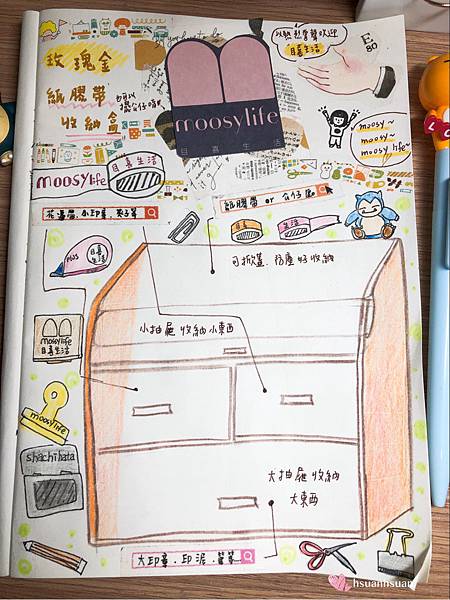 玫瑰金
紙膠帶
收納盒
可以
擺公仔唷!
you
moosylife
目喜生活
以熱烈掌聲歡迎
目喜生活
E
80
moosy~
moosy~
moosy life~
moosylife
目喜生活
花邊剪、小印章、夾子等
紙膠帶 or 公仔
生活
plus
目喜
生活
可掀蓋、防塵好收納
小抽屜收納小東西
moosylife
目喜生活
moosylife
shachihata
大抽屜收納
大東西
大印章、印泥、筆等
hsuannsuan